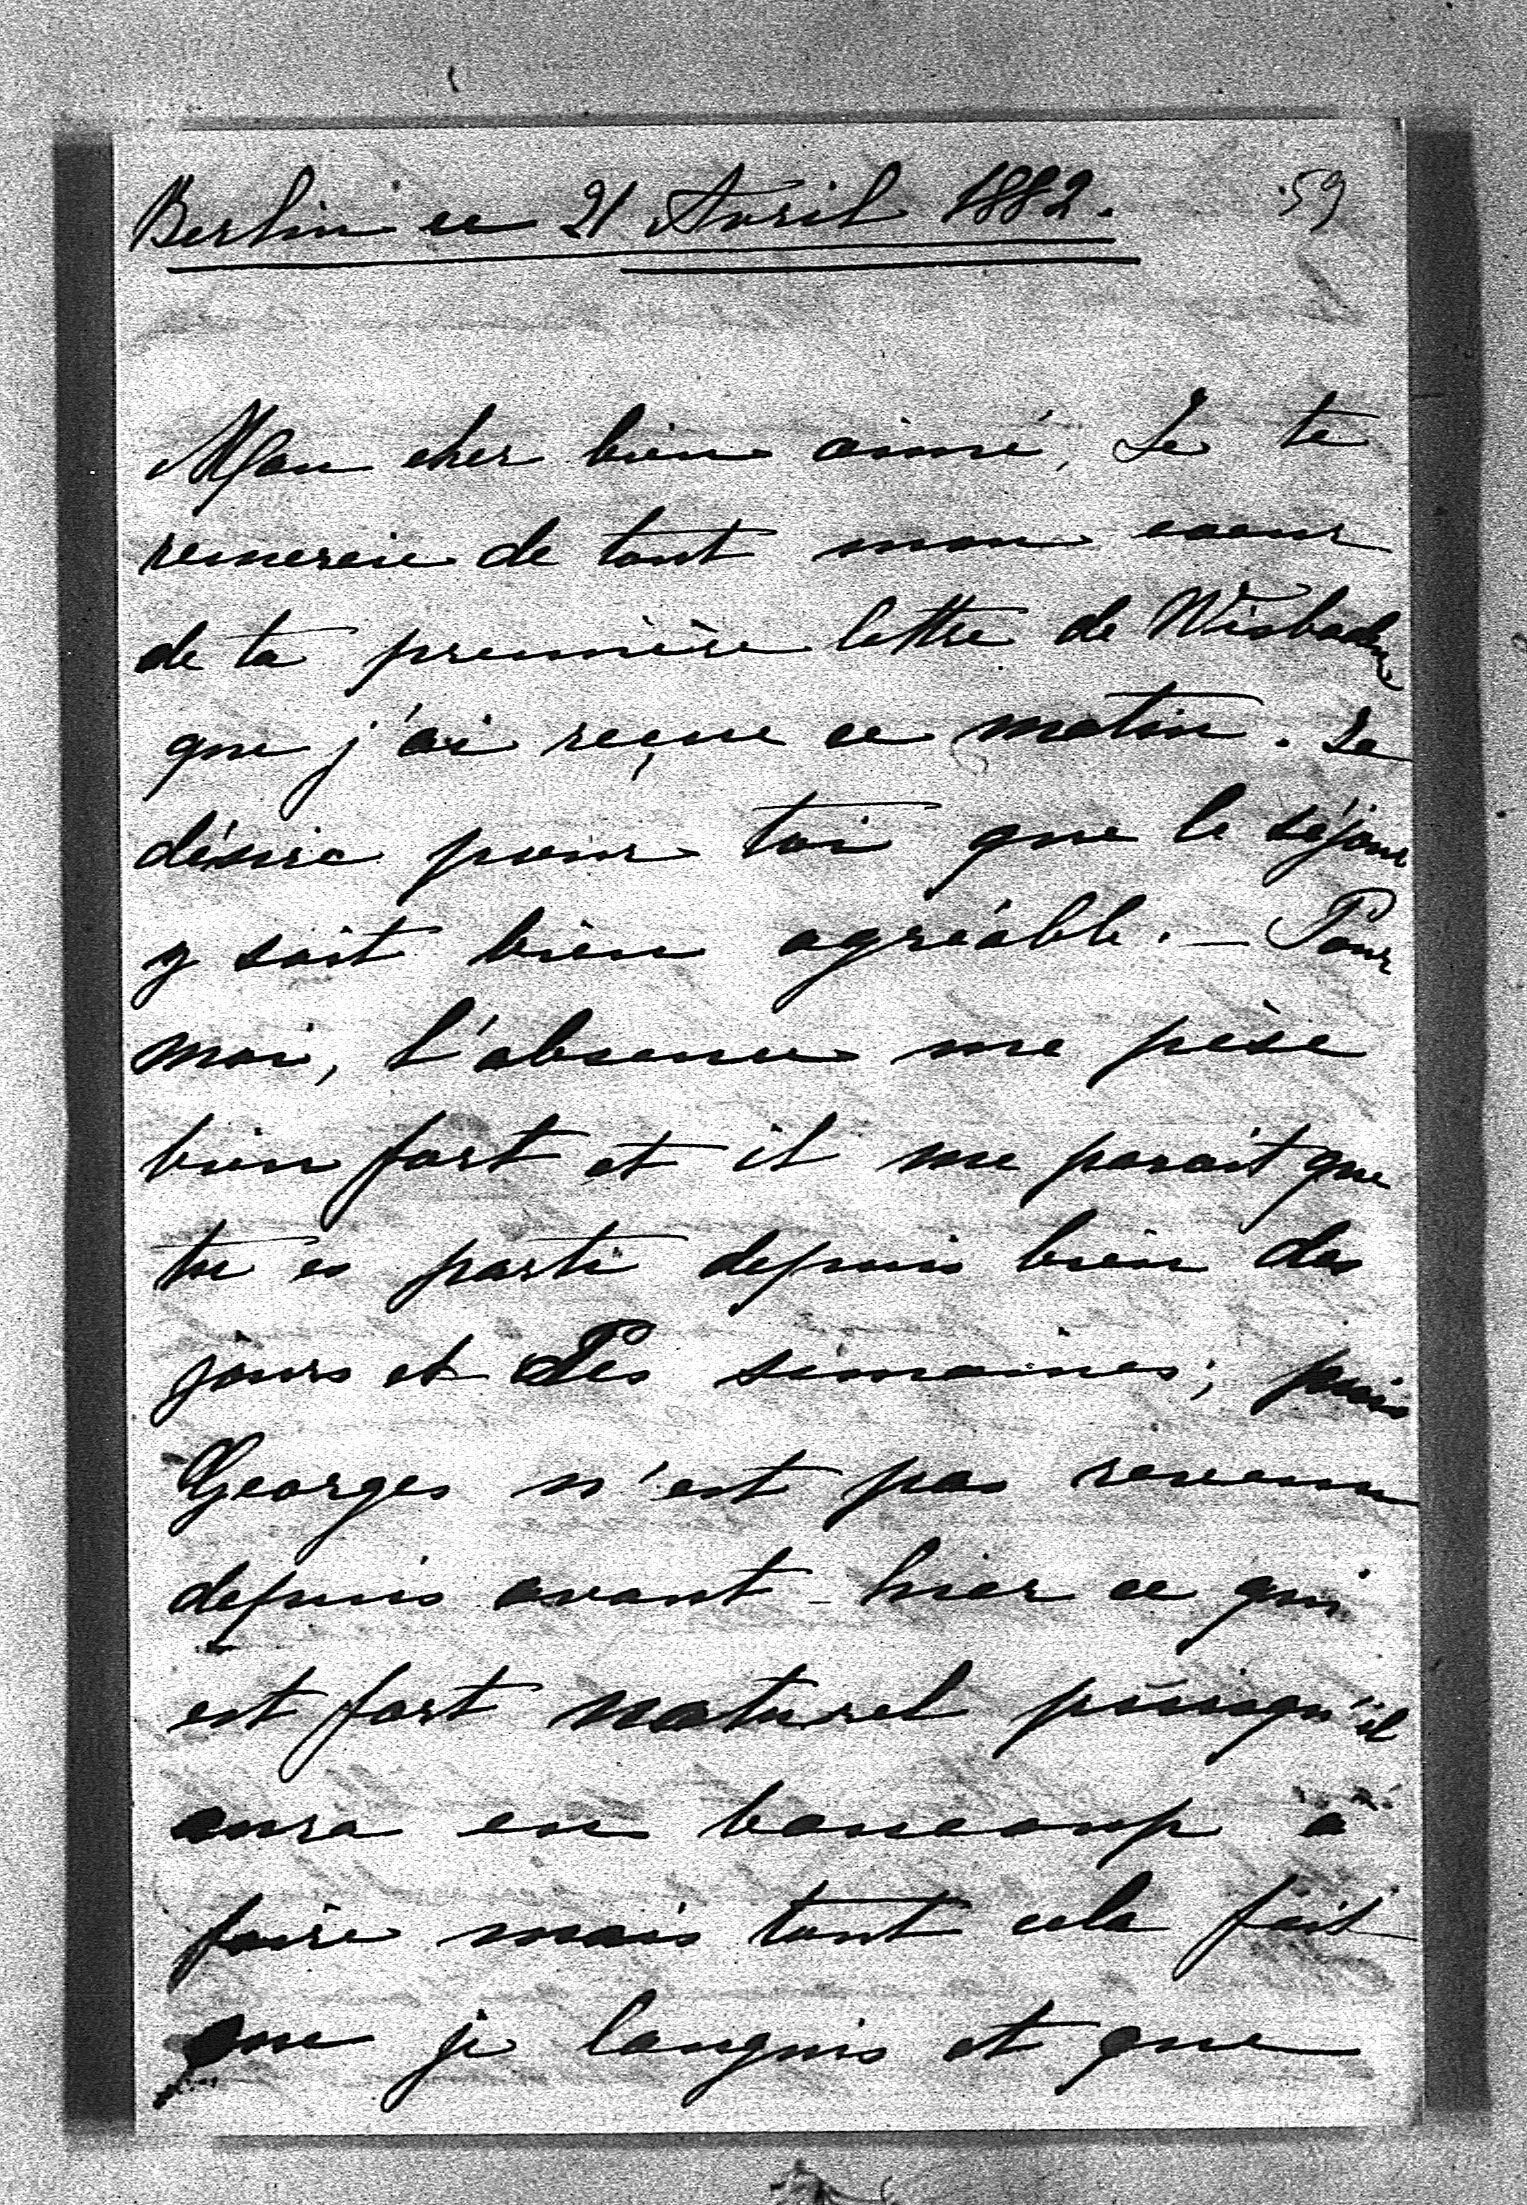 Berlin ce 21 Avril 1882.
59
Mon cher bien aimé, Je te
remercie de tout mon coeur
de ta première lettre de Wisbaden
que j'ai reçue ce matin. Je
désire pour toi que le séjour
y soit bien agréable. – Pour
moi, l'absence me pèse
bien fort et il me parait que
tu es parti depuis bien des
jours et des semaines; puis
Georges n'est pas revenu
depuis avant-hier ce qui
est fort naturel puisqu'il
aura eu beaucoup à
faire mais tout cela fait
que je languis et que